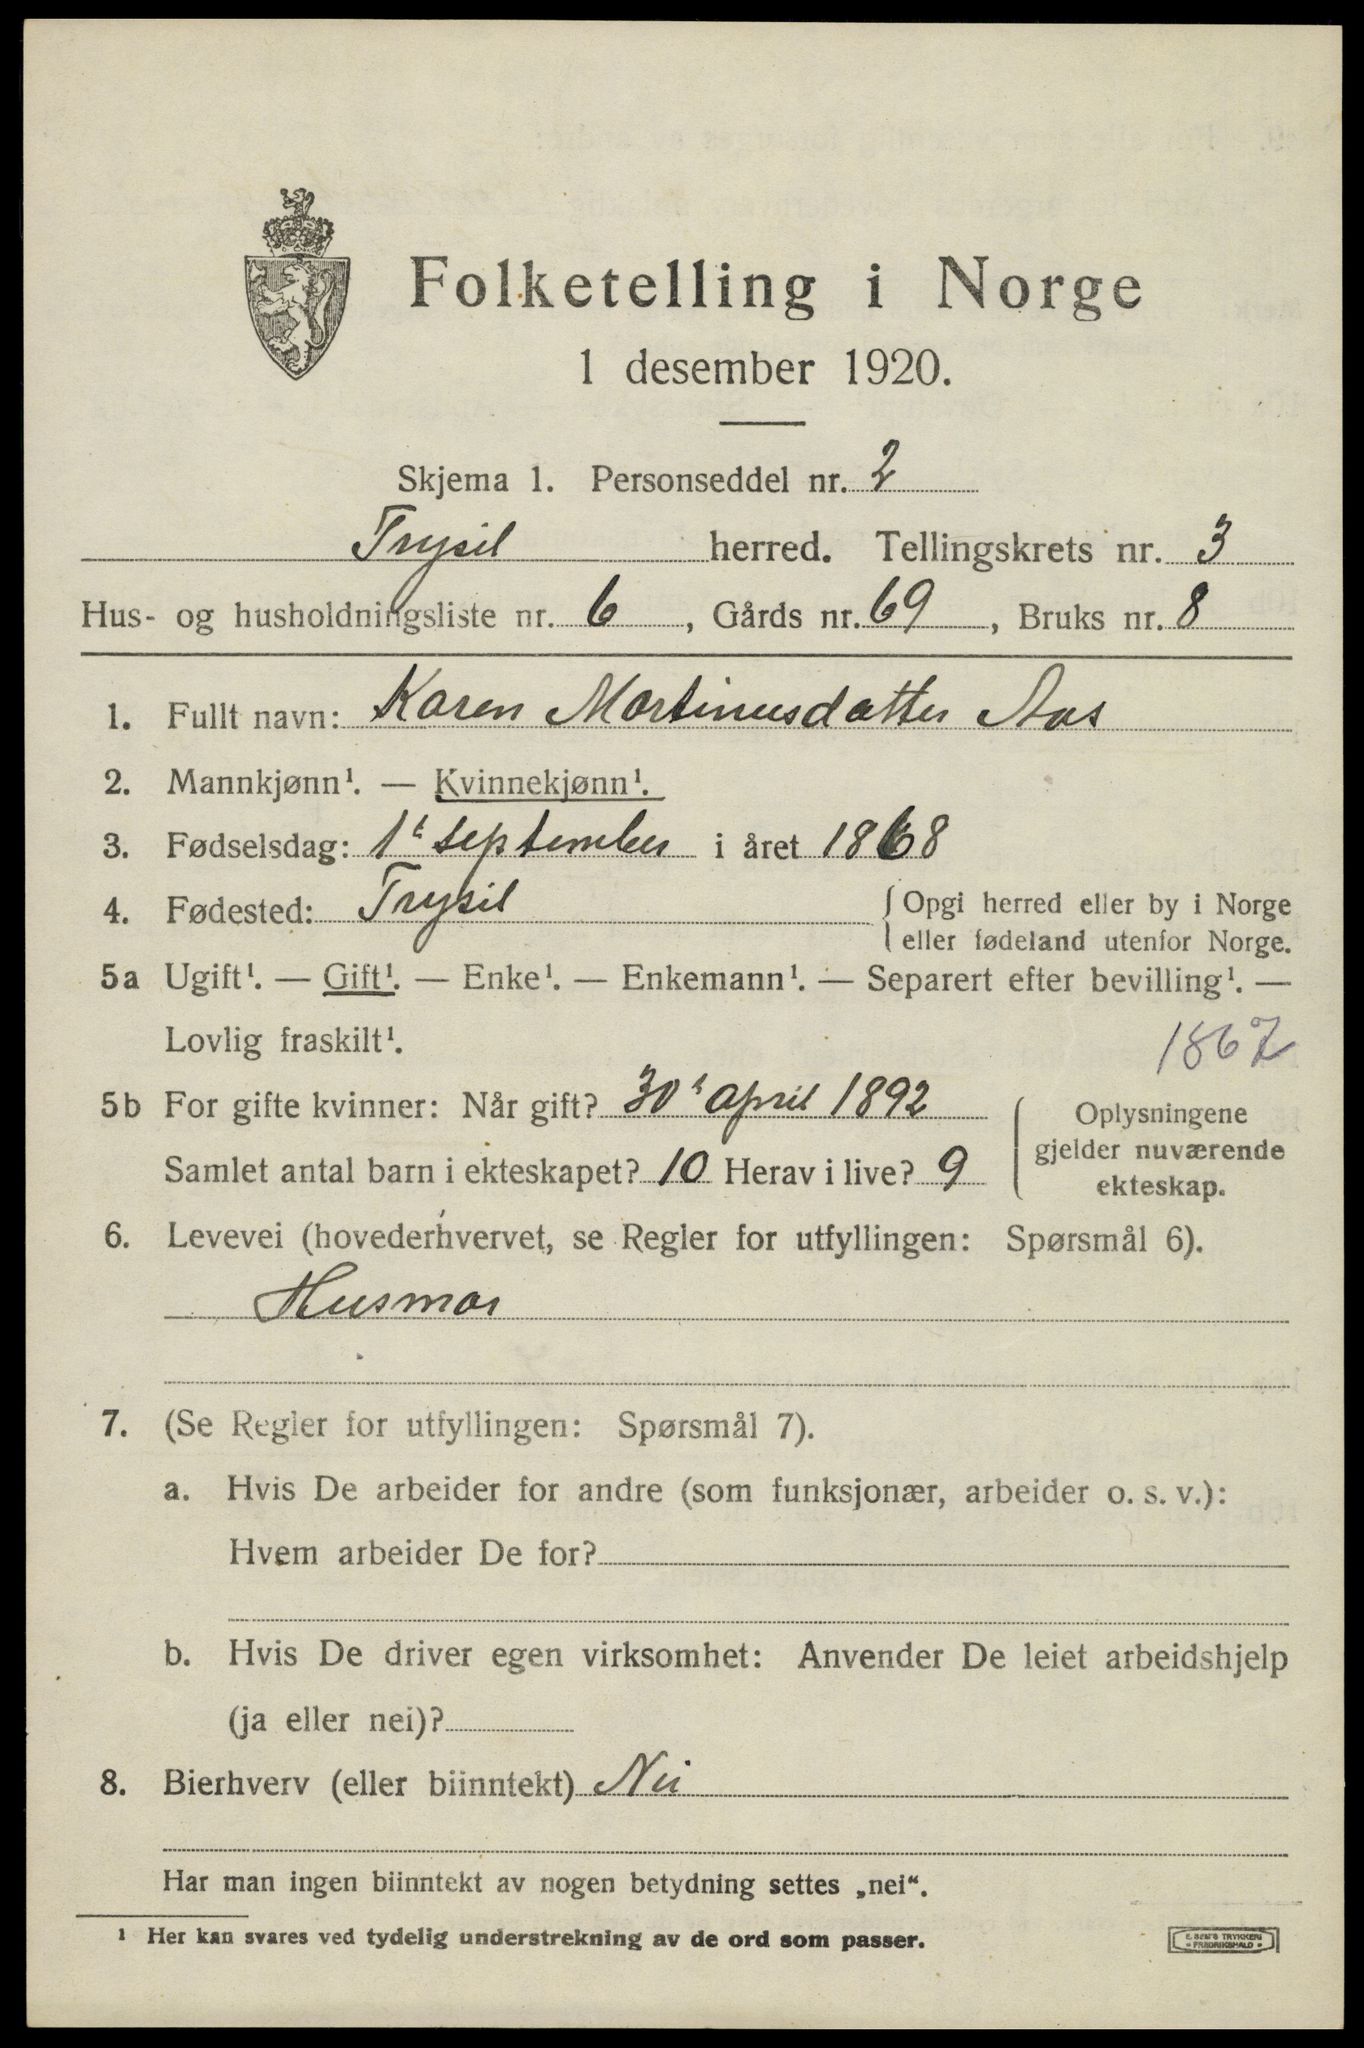 Folketelling i Norge
1 desember 1920.
Skjema 1. Personseddel nr. 2
Trysil herred. Tellingskrets nr. 3
Hus- og husholdningsliste nr. 6, Gårds nr. 69, Bruks nr. 8
1. Fullt navn: Karen Martinusdatter Aas
2. Mannkjønn¹. — Kvinnekjønn¹.
3. Fødselsdag: 1ᵗ september i året 1868
4. Fødested: Trysil { Opgi herred eller by i Norge
eller fødeland utenfor Norge.
5a Ugift¹. — Gift¹. — Enke¹. — Enkemann¹. — Separert efter bevilling¹. —
Lovlig fraskilt¹.
1867
5b For gifte kvinner: Når gift? 30ᵗ april 1892
Samlet antal barn i ekteskapet? 10 Herav i live? 9
Oplysningene
gjelder nuværende
ekteskap.
6. Levevei (hovederhvervet, se Regler for utfyllingen: Spørsmål 6).
Husmor
7. (Se Regler for utfyllingen: Spørsmål 7).
a. Hvis De arbeider for andre (som funksjonær, arbeider o. s. v.):
Hvem arbeider De for?
b. Hvis De driver egen virksomhet: Anvender De leiet arbeidshjelp
(ja eller nei)?
8. Bierhverv (eller biinntekt) Nei
Har man ingen biinntekt av nogen betydning settes „nei“.
¹ Her kan svares ved tydelig understrekning av de ord som passer.
E. SEM'S TRYKKERI
FREDRIKSHALD